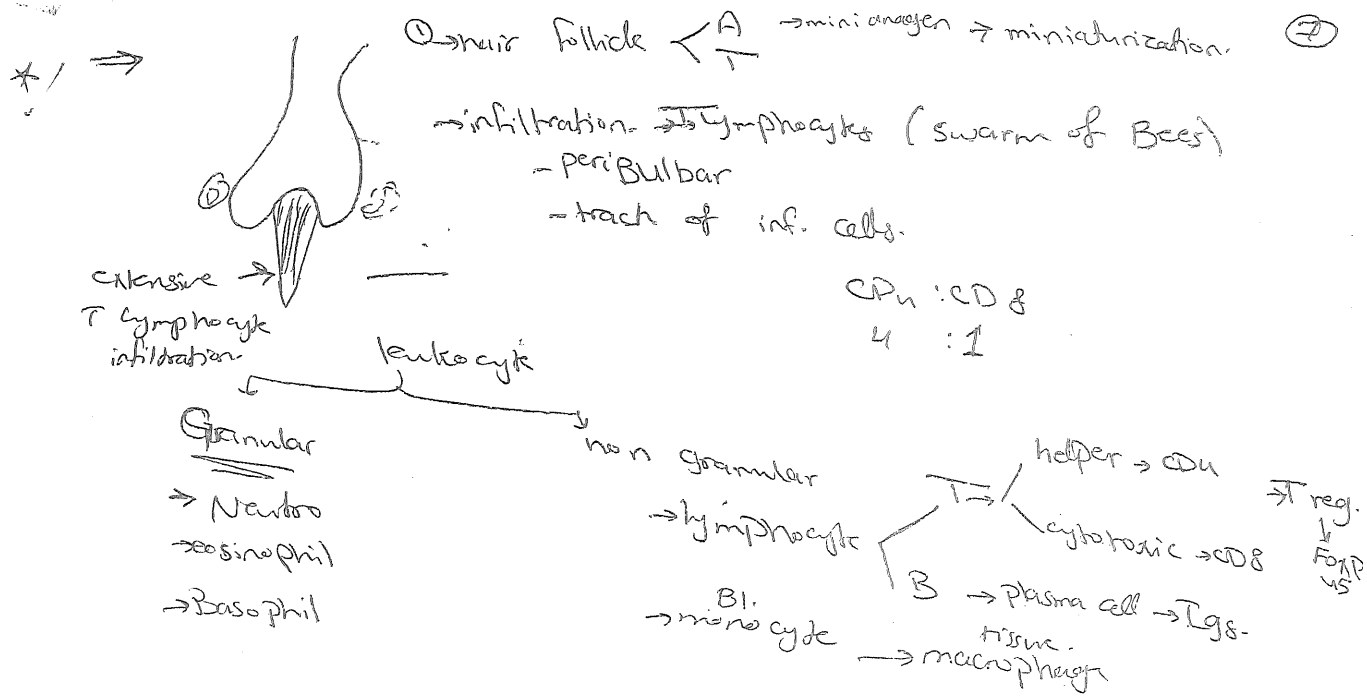 ① → hair follicle < A → mini anagen → miniaturization. ⑦
T
→ infiltration. → T Lymphocytes (swarm of Bees)
- periBulbar
- track of inf. cells.
extensive →
T Lymphocyte
infiltration.
CD4 : CD8
4 : 1
leukocyte
Granular
→ Neutro
→ eosinophil
→ Basophil
non granular
→ lymphocyte
T → helper → CD4 → T reg.
cytotoxic → CD8
FoxP
B → plasma cell → Igs.
Bl.
→ monocyte
tissue.
→ macrophage